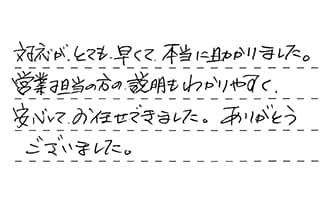 対応が、とても、早くて、本当に助かりました。
営業担当の方の、説明もわかりやすく、
安心して、お任せできました。ありがとう
ございました。